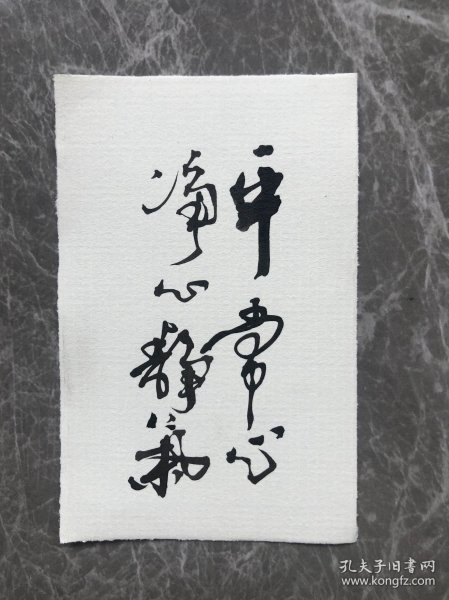 平常心
净心静氣
孔夫子旧书网
www.kongfz.com